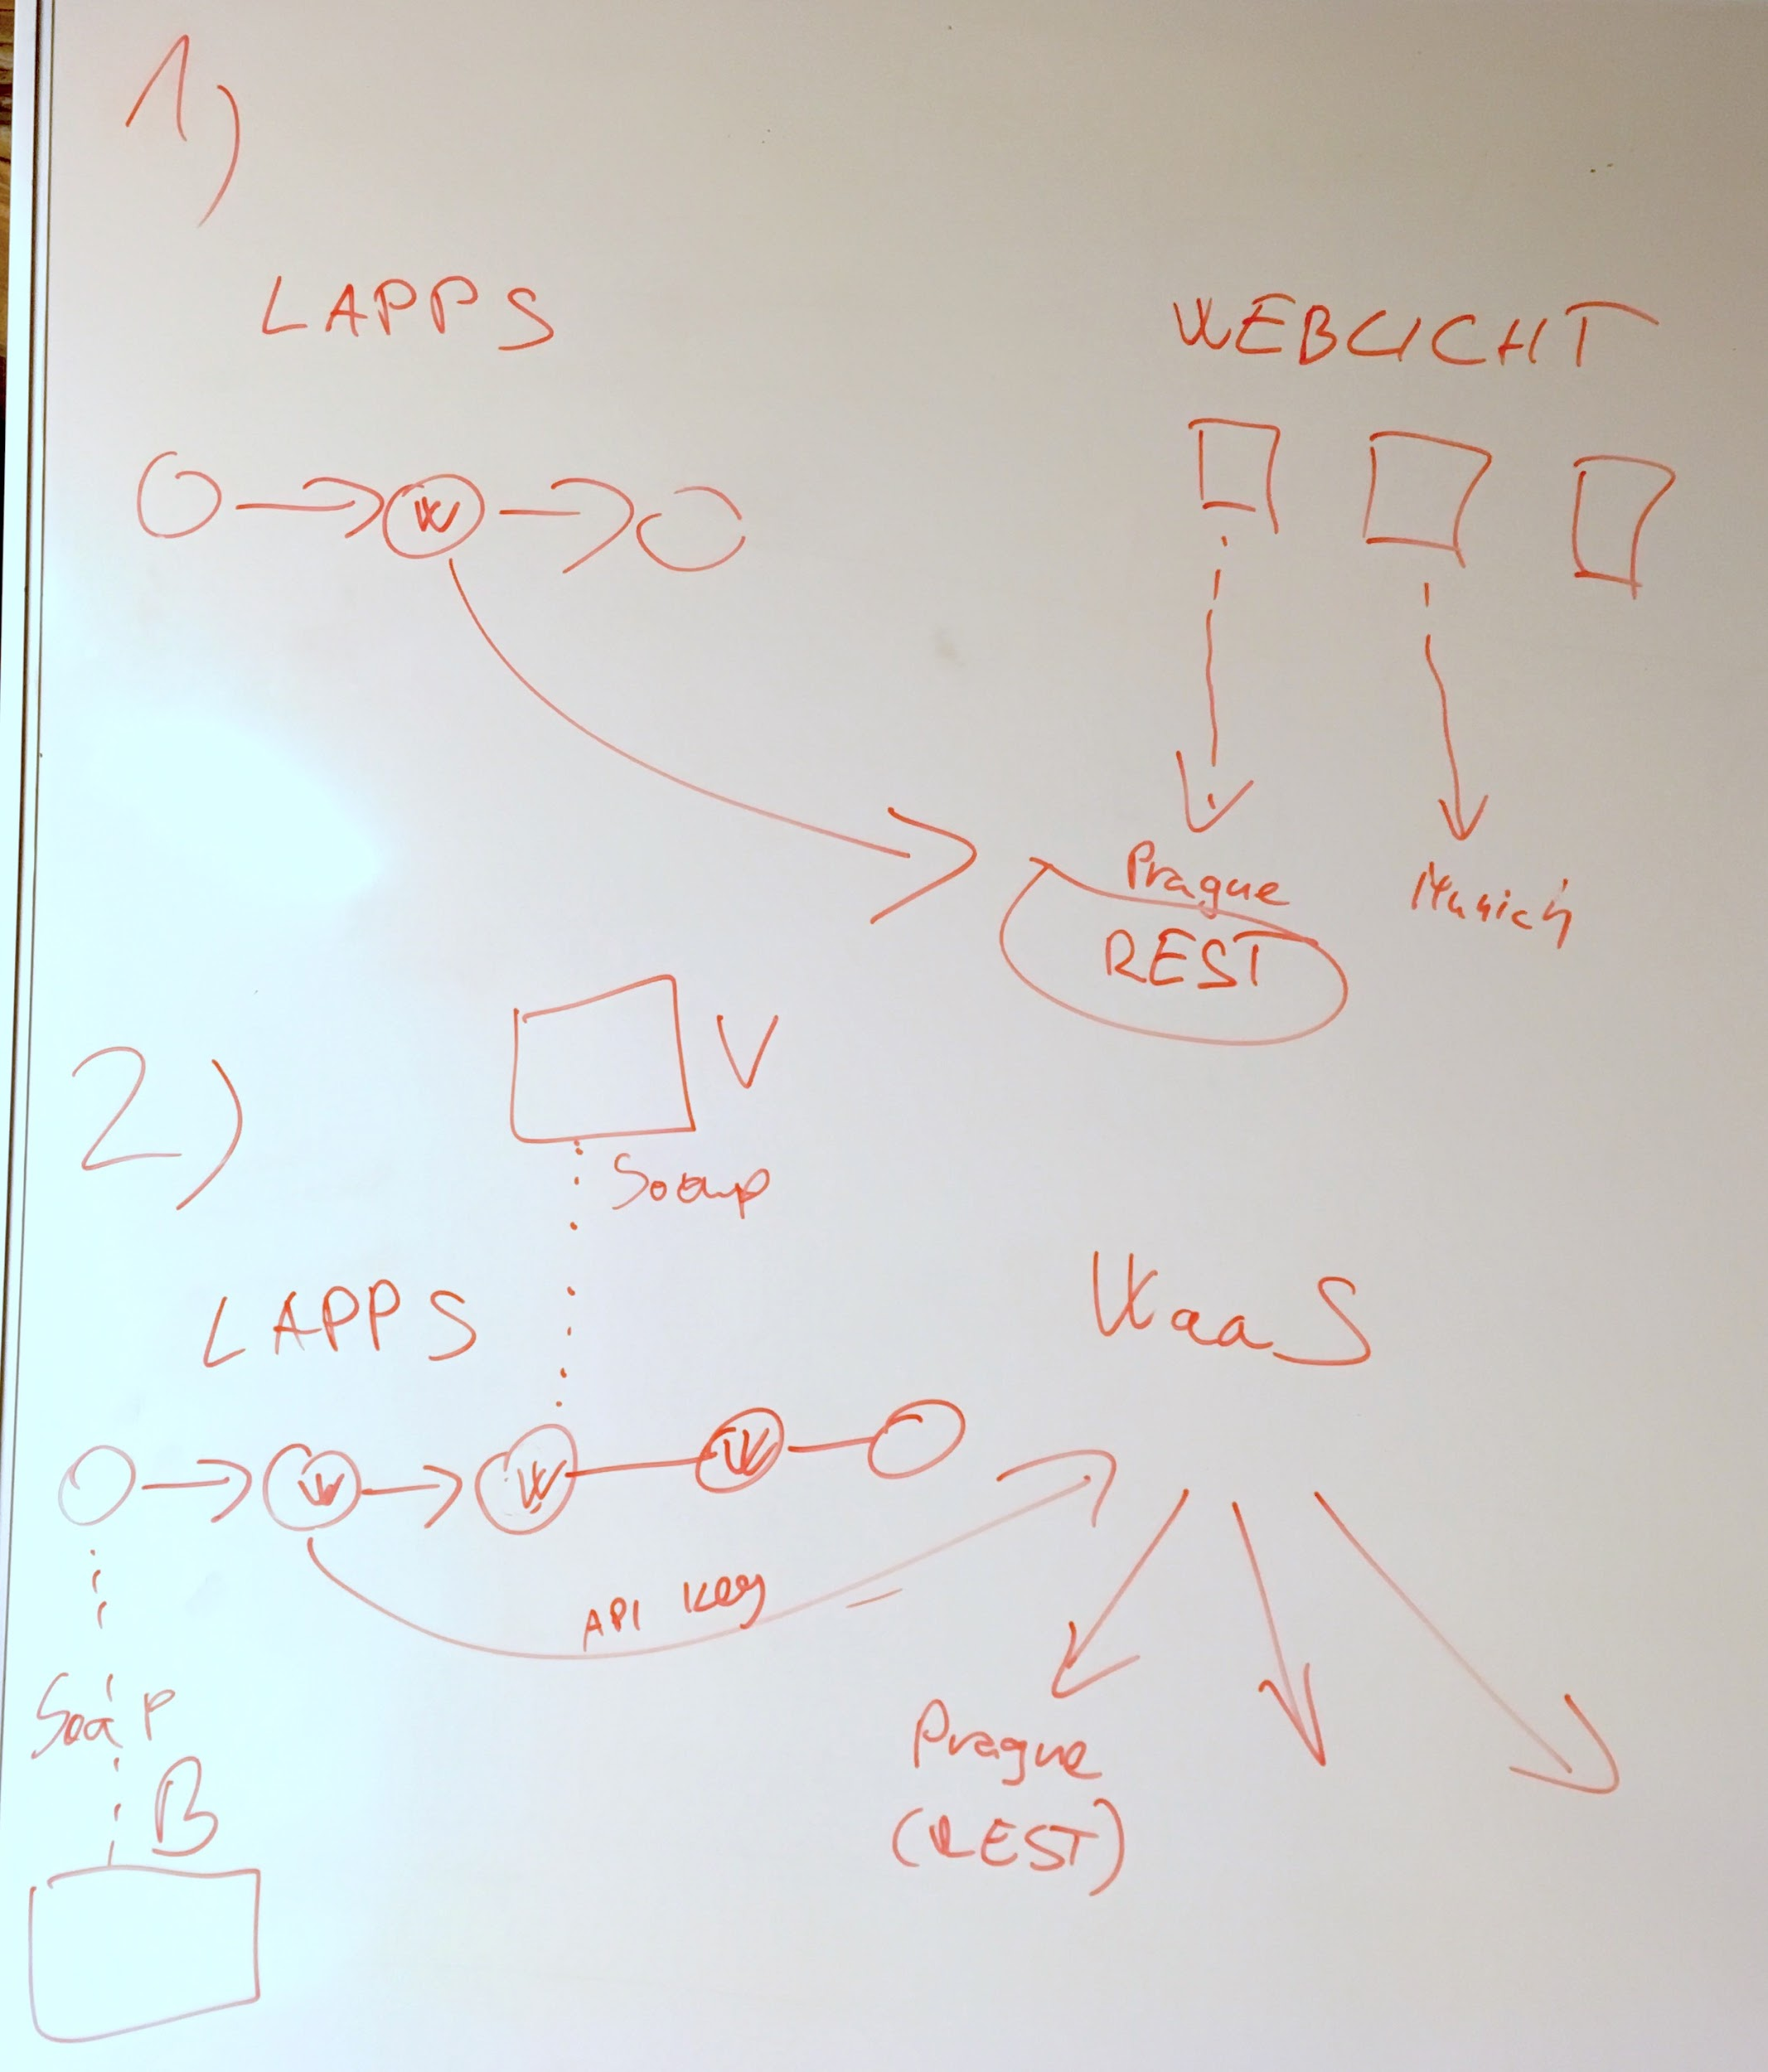 1)
LAPPS
WEBLICHT
W
Prague
Munich
REST
2)
V
Soap
LAPPS
WaaS
W
W
W
API Key
Soap
Prague
(REST)
B